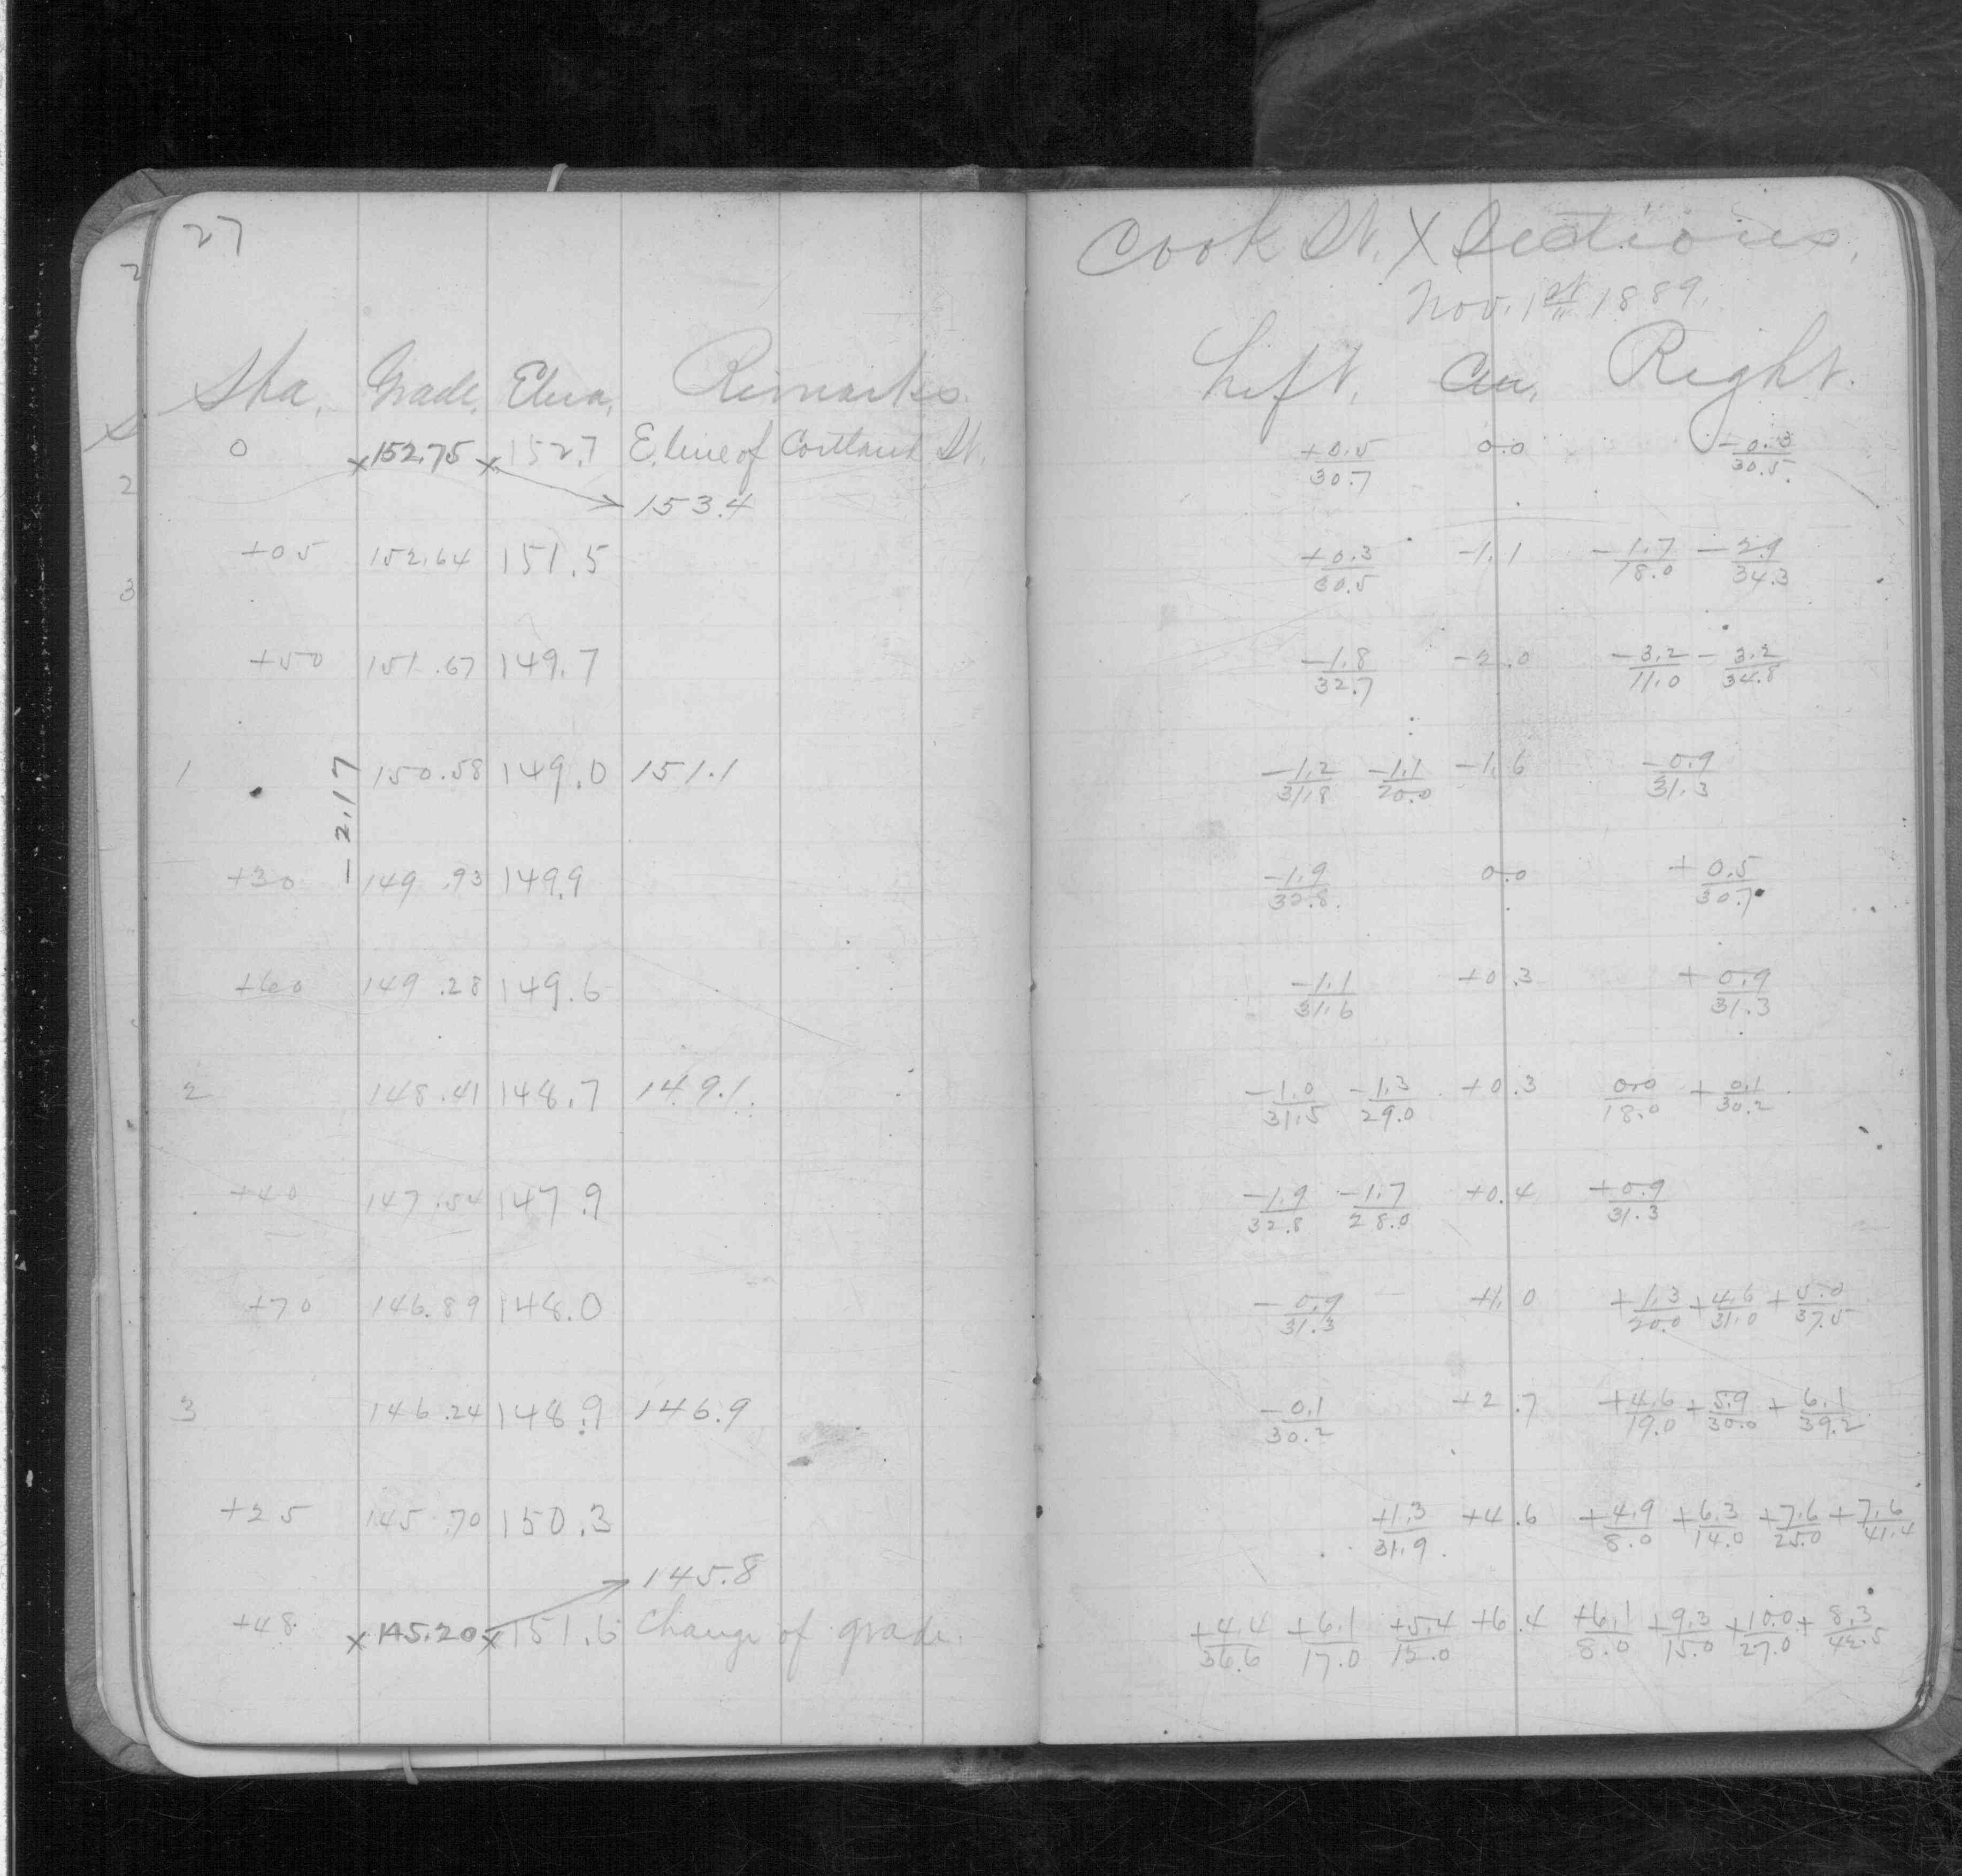 27
Cook St. X Sections.
Nov. 1st 1889.
Sta. Grade. Elev. Remarks.
Left. Cen. Right.
0 x 152.75 x 152.7 E. line of Cortland St. +0.5/30.7 0.0 -0.3/30.5
153.4
+05 152.64 151.5 +0.3/30.5 -1.1 -1.7/18.0 -2.9/34.3
+50 151.67 149.7 -1.8/32.7 -2.0 -3.2/11.0 -3.2/34.8
1 150.58 149.0 151.1 -1.2/31.8 -1.1/20.0 -1.6 -0.9/31.3
-2.17
+30 149.93 149.9 -1.9/32.8 0.0 +0.5/30.7
+60 149.28 149.6 -1.1/31.6 +0.3 +0.9/31.3
2 148.41 148.7 149.1 -1.0/31.5 -1.3/29.0 +0.3 0.0/18.0 +0.1/30.2
+40 147.54 147.9 -1.9/32.8 -1.7/28.0 +0.4 +0.9/31.3
+70 146.89 148.0 -0.9/31.3 +1.0 +1.3/20.0 +4.6/31.0 +5.0/37.5
3 146.24 148.9 146.9 -0.1/30.2 +2.7 +4.6/19.0 +5.9/30.0 +6.1/39.2
+25 145.70 150.3 +1.3/31.9 +4.6 +4.9/8.0 +6.3/14.0 +7.6/25.0 +7.6/41.4
145.8
+48 x 145.20 x 151.6 Change of grade. +4.4/36.6 +6.1/17.0 +5.4/12.0 +6.4 +6.1/8.0 +9.3/15.0 +10.0/27.0 +8.3/42.5
2
2
3